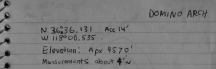 DOMINO ARCH
N 36°36.131 Acc 14'
W 118°06.535
Elevation: Apx 4570'
Measurements about 4'w